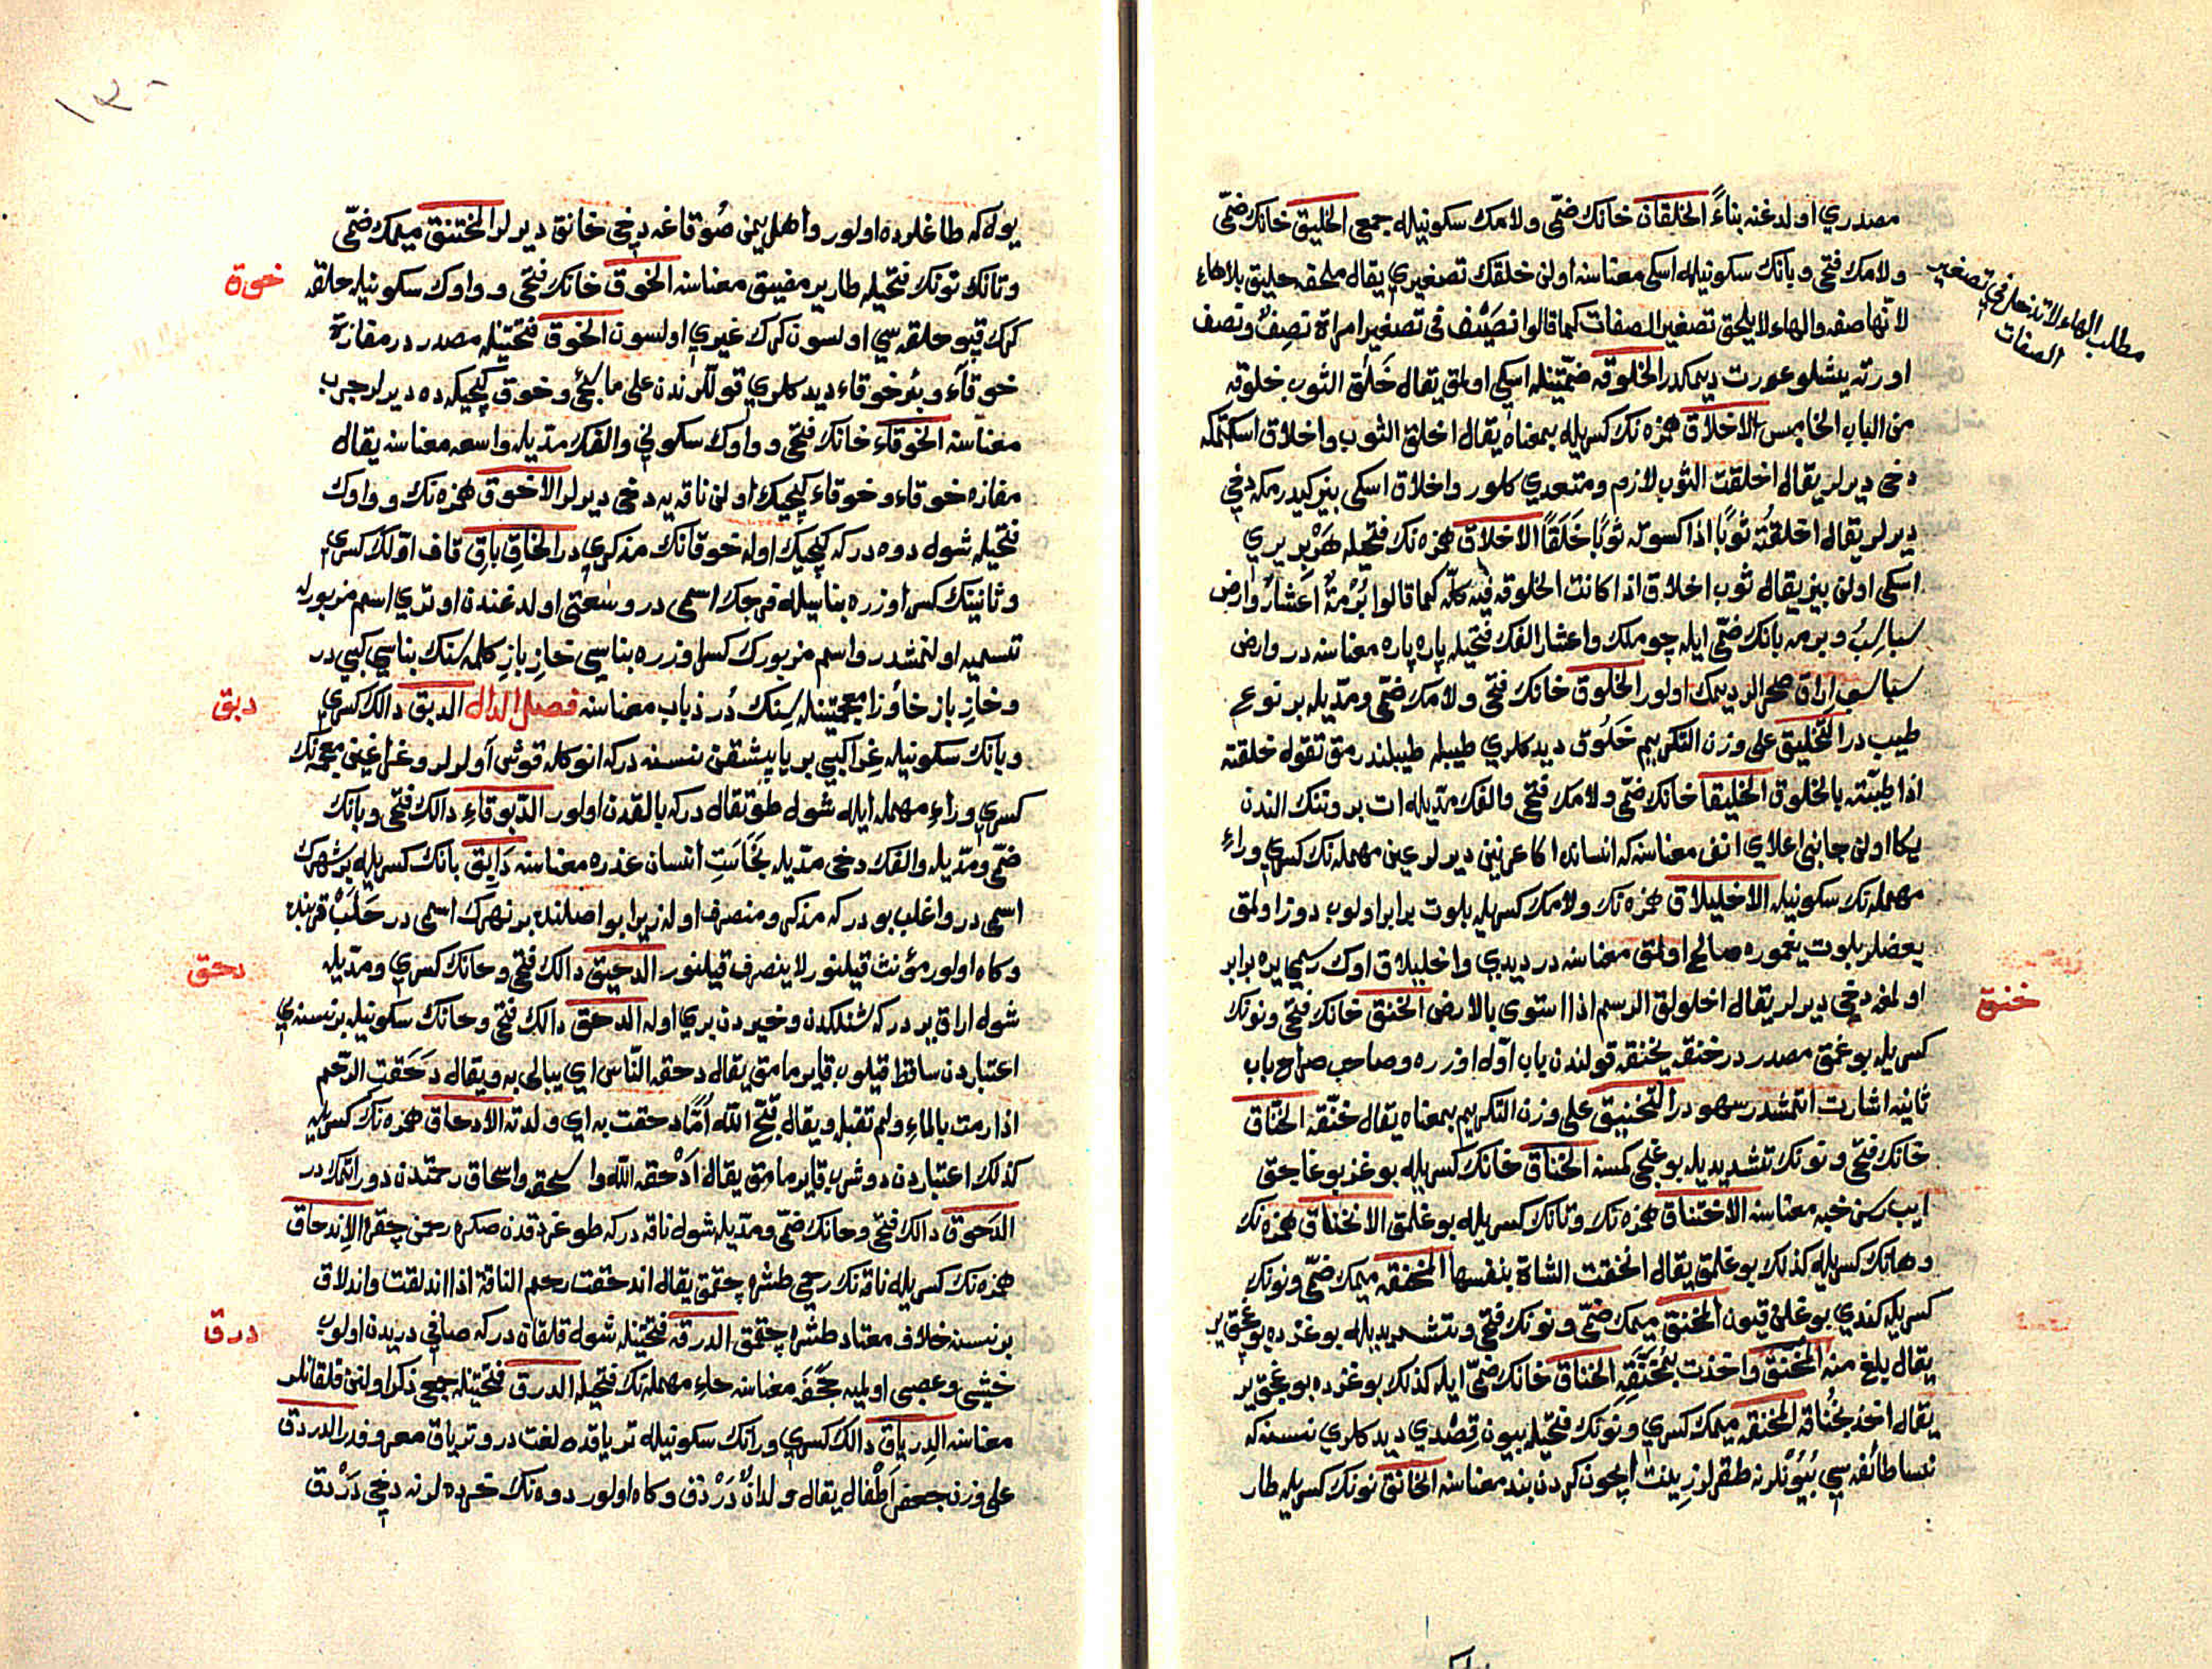 مصدري اولدغنه بناءً الخلقان خانك ضمّى ولامك سكونيله جمعى الخليق خانك ضمّى
ولامك فتحى ويانك سكونيله اسكى معناسنه اولن خلقك تصغيري يقال ملحفه خليق بلاهاء
لانّها صفه والهاء لا يلحق تصغير الصفات كما قالوا نصَيْف فى تصغير امراة نصِفٌ ونصف
اورته يشلو عورت ديمكدر الخلوقه ضمّتيله اسكى اولمق يقال خَلُق الثوب خلوقه
من الباب الخامس الاخلاق همزه نك كسريله بمعناه يقال اخلق الثوب واخلاق اسكتمكه
دخى ديرلر يقال اخلقت الثوب لازم ومتعدي كلور واخلاق اسكى بيز كيدرمكه دخي
ديرلر يقال اخلقتُه ثوبًا اذا كسوته ثوبًا خَلَقًا الاخلاق همزه نك فتحيله هَرْ بر يري
اسكى اولن بيز يقال ثوب اخلاق اذا كانت الخلوقه فيه كلّه كما قالوا بُرْمةٌ اعشارٌ وارض
سباسِبُ وبرمه بانك ضمّى ايله چوملك واعشار الفك فتحيله پاره پاره معناسنه در وارض
سباسب اراق صحرالر ديمك اولور الخلوق خانك فتحى ولامك ضمّى ومدّيله بر نوع
طيب در التخليق على وزن التكريم خَلُوق ديدكلري طيبله طيبلندرمق تقول خلقته
اذا طيبّته بالخلوق الخليقا خانك ضمّى ولامك فتحى والفك مدّيله ات برونك الندن
يكا اولن جانبى اعلاي انف معناسنه كه انسانده اكا عرنين ديرلر عين مهمله نك كسري وراء
مهمله نك سكونيله الاخليلاق همزه نك ولامك كسريله بلوت برابر اولوب دوز اولمق
بعضلر بلوت يغموره صالح اولمق معناسنه در ديدي واخليلاق اوك رسمى يره برابر
اولمغه دخي ديرلر يقال اخلولق الرسم اذا استوى بالارض الخنق خانك فتحى ونونك
كسريله بوغمق مصدر در خنقه يخنقه قولندن باب اوّل اوزره وصاحب صراح باب
ثانيه اشارت اتمشدر سهو در التخنيق على وزن التكريم بمعناه يقال خنّقه الخنّاق
خانك فتحى ونونك تشديديله بوغجى كسنه الخناق خانك كسريله بوغز بوغاجق
ايب رسن خبه معناسنه الاختناق همزه نك وتانك كسريله بوغلمق الانخناق همزه نك
وهانك كسريله كذلك بوغلمق يقال انخنقت الشاة بنفسها المنخنقه ميمك ضمّى ونونك
كسريله كندي بوغلن قيون المخنق ميمك ضمّى ونونك فتحى وتشديديله بوغزده بوغجق ير
يقال بلغ منه المخنّق واخذت بمُخَنَّقِه الخناق خانك ضمّى ايله كذلك بوغزده بوغجق ير
يقال اخذ بخُناقه المخنقه ميمك كسري ونونك فتحيله بيون قصدي ديدكلري نسنه كه
نسا طائفه سي بُيُونلرنه طقرلر زينت ايچون كردن بند معناسنه الخانق نونك كسريله طار
مطلب الهاء لا تدخل في تصغير
الصفات
خنق
١٣٠
يوله كه طاغلرده اولور واهل يمن صُوقاغه دخي خانق ديرلر المختنق ميمك ضمّى
وتانك نونك فتحيله طار ير مضيق معناسنه الخوق خانك فتحى وواوك سكونيله حلقه
كرك قپو حلقه سي اولسون كرك غيري اولسون الخوق فتحتيله مصدر در مفازة
خوقآء وبئر خوقاء ديدكلري قوللرندن على ما يجئ وخوق كيجيكه ده ديرلر جرب
معناسنه الخوقاء خانك فتحى وواوك سكونى والفك مدّيله واسعه معناسنه يقال
مفازه خوقاء وخوقاء كيجيك اولن ناقه يه دخى ديرلر الاخوق همزه نك وواوك
فتحيله شول دوه در كه كيجيك اوله خوقانك مذكري در الخاقِ باقِ قاف اوّلك كسري
وثانينك كسر اوزره بناسيله فرجك اسمى در وسعتى اولدغندن اوتري اسم مزبورله
تسميه اولنمشدر واسم مزبورك كسر اوزره بناسي خازِ بازِ كلمه سنك بناسي كبي در
وخازِ باز خاؤ زا معجمتيله سِنك دُر ذباب معناسنه فصل الدال الدبق دالك كسري
وبانك سكونيله غِرا كبي بر ياپشقن نسنه در كه انوكله قوش اَولرلر وغرا غين معجمه نك
كسري وراء مهمله ايله شول طوتقال در كه بالقدن اولور الدّبوقاء دالك فتحى وبانك
ضمّى ومدّيله والفك دخى مدّيله نجاست انسان عذره معناسنه دَابِق بانك كسريله بر شهرك
اسمى در واغلب بودر كه مذكر ومنصرف اوله زيرا بو اصلنده بر نهرك اسمى در حَلَبْ قربنده
وكاه اولور مؤنث قيلنور لا ينصرف قيلنور الدحيق دالك فتحى وحانك كسري ومدّيله
شول اراق ير در كه شنلكدن وخيردن بري اوله الدحق دالك فتحى وحانك سكونيله بر نسنه يي
اعتباردن ساقط قيلوب قايرمامق يقال دحقه النّاس اي يبالى به ويقال دَحَقَتِ الرّحم
اذا رمت بالماءِ ولم تقبل ويقال قبّح الله اُمًّا دحقت به اي ولدته الادحاق همزه نك كسريله
كذلك اعتباردن دوشرب قايرمامق يقال اَدْحقه الله واسحقه واسحاق رحمتدن دور اتمكدر
الدَحوق دالك فتحى وحانك ضمّى ومدّيله شول ناقه در كه طوغردقدن صكره رحمن چقره الاِندحاق
همزه نك كسريله ناقه نك رحمى طشره چقمق يقال اندحقت رحم الناقة اذا اندلقت واندلاق
بر نسنه خلاف معتاد طشره چقمق الدرقة فتحتيله شول قلقان در كه صافي دريدن اولوب
خشبى وعصبى اولميه حَجَفَه معناسنه حاءِ مهمله نك فتحيله الدرق فتحتيله جمعى ذكر اولنن قلقانلر
معناسنه الدِرياق دالك كسري ورانك سكونيله ترياقده لغت در وترياق معروفدر الدردق
على وزن جعفر اَطْفال يقال ولدانٌ دَرْدق وكاه اولور دوه نك خرده لرنه دخي دَرْدق
خوق
دبق
دحق
درق